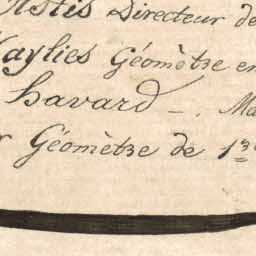 Astis Directeur de
Haylies Géomètre en
havard -. Ma
Géomètre de 1re